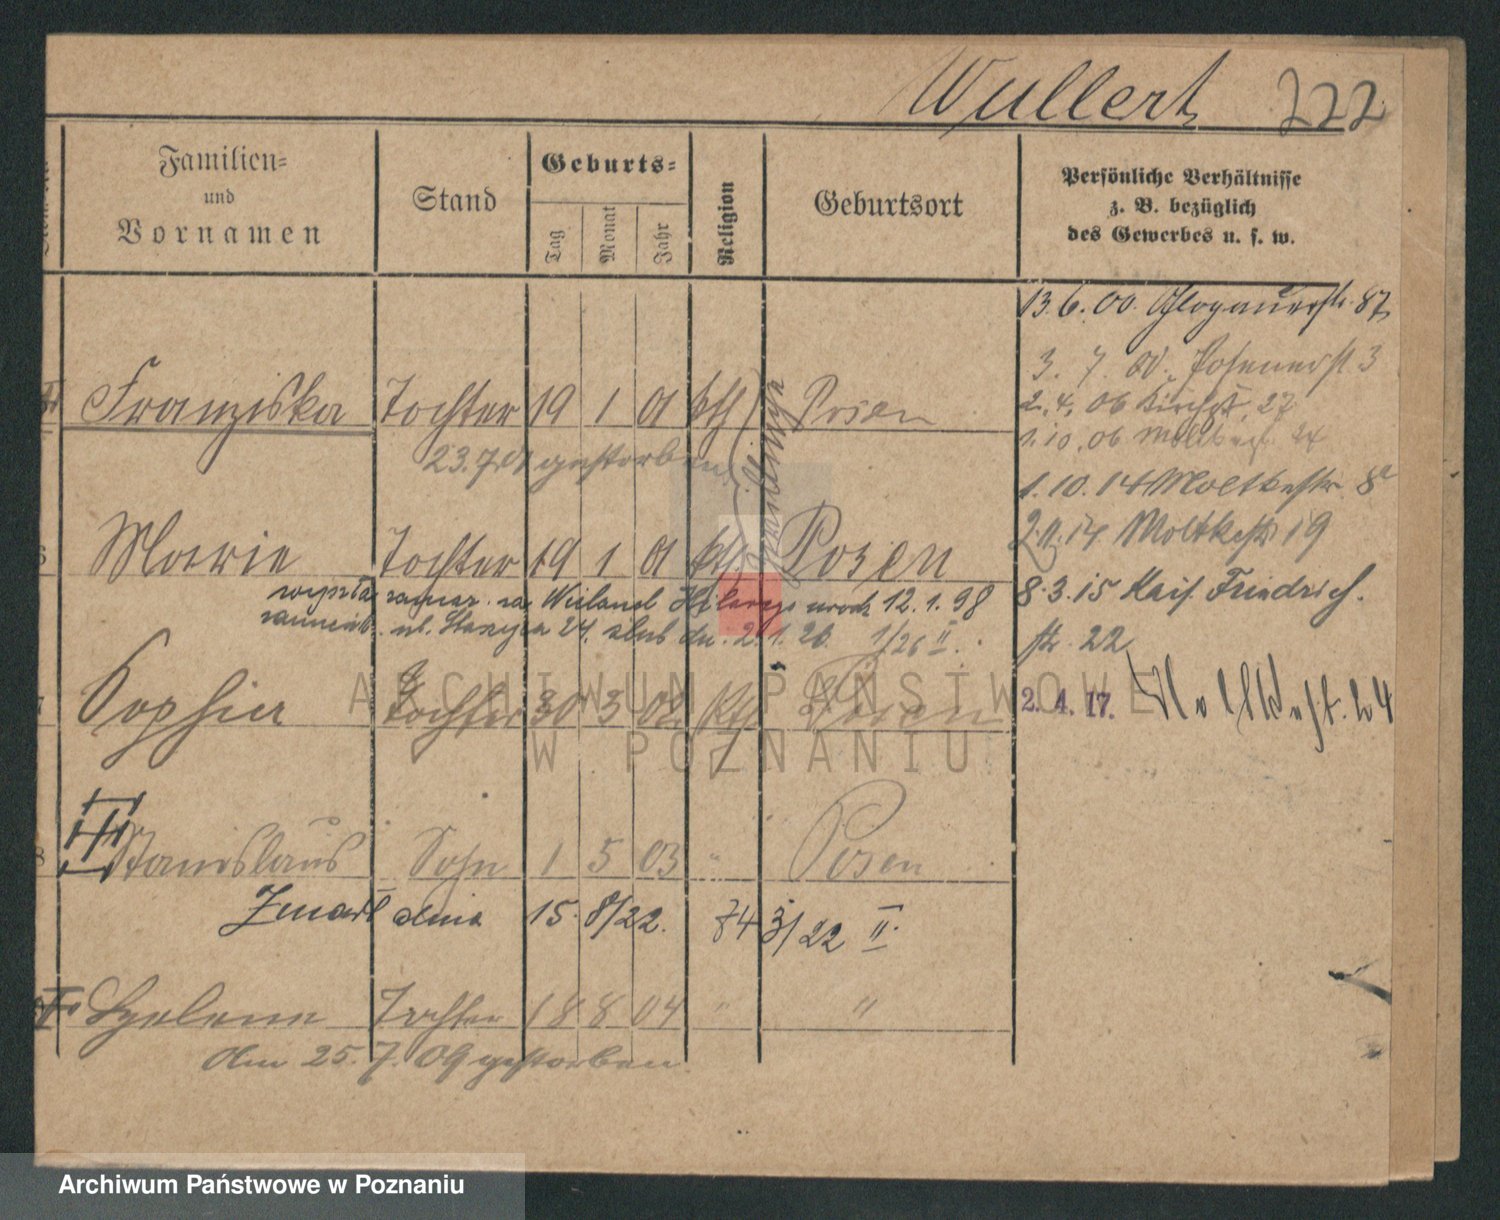 Wullert 222
Familien=
und
Vornamen
Stand
Geburts=
Tag
Monat
Jahr
Religion
Geburtsort
Persönliche Verhältnisse
z. B. bezüglich
des Gewerbes u. s. w.
13.6.00. Glogauerstr. 87
3. 7. 00. Posenerst 3
Franziska Tochter 19 1 01 kth Posen
2.4.06 27
23.7.01 gestorben
1.10.06 24
1.10.14 Moltkestr. 8a
Marie Tochter 19 1 01 kth Posen
14 Moltkestr 19
Wieland 12.1.98
8.3.15 Kais. Friedrich.
24. 1/26 II.
str. 22
Sophie Tochter 30 3 02 kth Posen
2.4.17. 24
ARCHIWUM PAŃSTWOWE
W POZNANIU
8 Stanislaus Sohn 1 5 03 " Posen
Zmarł dnia 15. 8/22. 74 3/22 II.
Helene Tochter 18 8 04 " "
Am 25.7.09 gestorben
Archiwum Państwowe w Poznaniu